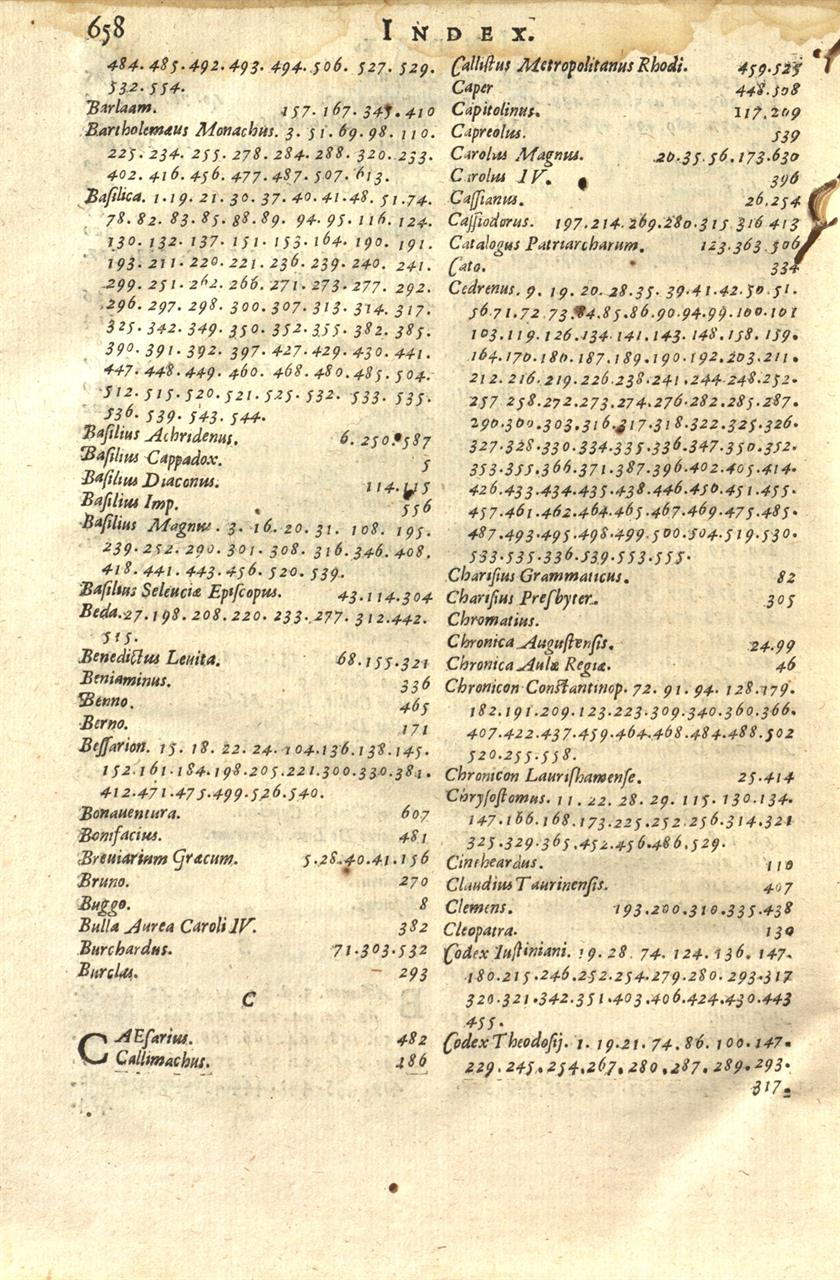 658 INDEX.
484. 485. 492. 493. 494. 506. 527. 529.
532. 554.
Barlaam. 157. 167. 345. 410
Bartholemæus Monachus. 3. 51. 69. 98. 110.
225. 234. 255. 278. 284. 288. 320. 233.
402. 416. 456. 477. 487. 507. 613.
Basilica. 1. 19. 21. 30. 37. 40. 41. 48. 51. 74.
78. 82. 83. 85. 88. 89. 94. 95. 116. 124.
130. 132. 137. 151. 153. 164. 190. 191.
193. 211. 220. 221. 236. 239. 240. 241.
299. 251. 262. 266. 271. 273. 277. 292.
296. 297. 298. 300. 307. 313. 314. 317.
325. 342. 349. 350. 352. 355. 382. 385.
390. 391. 392. 397. 427. 429. 430. 441.
447. 448. 449. 460. 468. 480. 485. 504.
512. 515. 520. 521. 525. 532. 533. 535.
536. 539. 543. 544.
Basilius Achridenus. 6. 250. 587
Basilius Cappadox. 5
Basilius Diaconus. 114. 115
Basilius Imp. 556
Basilius Magnus. 3. 16. 20. 31. 108. 195.
239. 252. 290. 301. 308. 316. 346. 408.
418. 441. 443. 456. 520. 539.
Basilius Seleuciæ Episcopus. 43. 114. 304
Beda. 27. 198. 208. 220. 233. 277. 312. 442.
515.
Benedictus Leuita. 68. 155. 321
Beniaminus. 336
Benno. 465
Berno. 171
Bessarion. 15. 18. 22. 24. 104. 136. 138. 145.
152. 161. 184. 198. 205. 221. 300. 330. 381.
412. 471. 475. 499. 526. 540.
Bonauentura. 607
Bonifacius. 481
Breuiarium Græcum. 5. 28. 40. 41. 156
Bruno. 270
Buggo. 8
Bulla Aurea Caroli IV. 382
Burchardus. 71. 303. 532
Burclas. 293
C
CAEsarius. 482
Callimachus. 186
Callistus Metropolitanus Rhodi. 459. 525
Caper 448. 508
Capitolinus. 117. 209
Capreolus. 539
Carolus Magnus. 20. 35. 56. 173. 630
Carolus IV. 396
Cassianus. 26. 254
Cassiodorus. 197. 214. 269. 280. 315. 316 413
Catalogus Patriarcharum. 123. 363. 506
Cato. 334
Cedrenus. 9. 19. 20. 28. 35. 39. 41. 42. 50. 51.
56. 71. 72. 73. 84. 85. 86. 90. 94. 99. 100. 101
103. 119. 126. 134. 141. 143. 148. 158. 159.
164. 170. 180. 187. 189. 190. 192. 203. 211.
212. 216. 219. 226. 238. 241. 244. 248. 252.
257 258. 272. 273. 274. 276. 282. 285. 287.
290. 300. 303. 316. 317. 318. 322. 325. 326.
327. 328. 330. 334. 335. 336. 347. 350. 352.
353. 355. 366. 371. 387. 396. 402. 405. 414.
426. 433. 434. 435. 438. 446. 450. 451. 455.
457. 461. 462. 464. 465. 467. 469. 475. 485.
487. 493. 495. 498. 499. 500. 504. 519. 530.
533. 535. 336. 539. 553. 555.
Charisius Grammaticus. 82
Charisius Presbyter. 305
Chromatius.
Chronica Augustensis. 24. 99
Chronica Aulæ Regiæ. 46
Chronicon Constantinop. 72. 91. 94. 128. 179.
182. 191. 209. 123. 223. 309. 340. 360. 366.
407. 422. 437. 459. 464. 468. 484. 488. 502
520. 255. 558.
Chronicon Laurishamense. 25. 414
Chrysostomus. 11. 22. 28. 29. 115. 130. 134.
147. 166. 168. 173. 225. 252. 256. 314. 321
325. 329. 365. 452. 456. 486. 529.
Cintheardus. 110
Claudius Taurinensis. 407
Clemens. 193. 200. 310. 335. 438
Cleopatra. 130
Codex Iustiniani. 19. 28. 74. 124. 136. 147.
180. 215. 246. 252. 254. 279. 280. 293. 317
320. 321. 342. 351. 403. 406. 424. 430. 443
455.
Codex Theodosij. 1. 19. 21. 74. 86. 100. 147.
229. 245. 254. 267. 280. 287. 289. 293.
317.